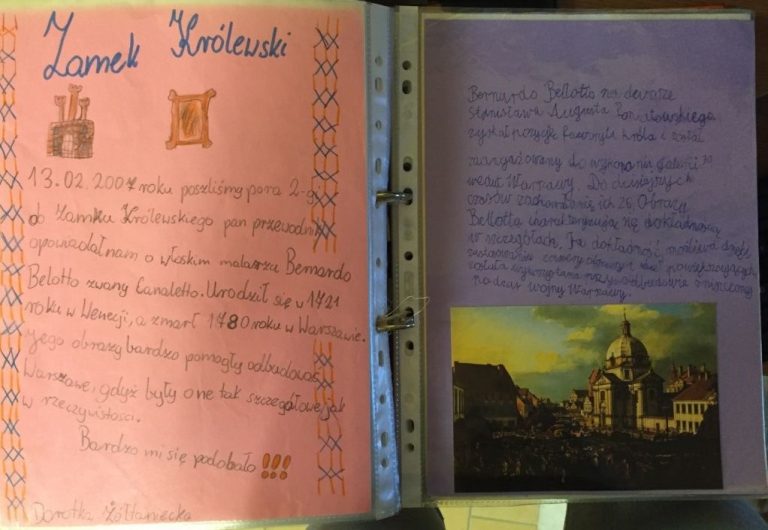 Zamek Królewski
13.02.2007 roku poszliśmy para 2-gi
do Zamku Królewskiego pan przewodnik
opowiadał nam o włoskim malarzu Bernardo
Belotto zwany Canaletto. Urodził się w 1721
roku w Wenecji, a zmarł 1780 roku w Warszawie.
Jego obrazy bardzo pomogły odbudować
Warszawę, gdyż były one tak szczegółowe jak
w rzeczywistości.
Bardzo mi się podobało!!!
Dorotka Żółtaniecka
Bernardo Bellotto na dworze
Stanisława Augusta Poniatowskiego
zyskał pozycję faworyta króla i został
zaangażowany do wykonania galerii
wedut Warszawy. Do dzisiejszych
czasów zachowało się ich 26. Obrazy
Bellotta charakteryzują się dokładnością
w szczegółach. Ta dokładność możliwa dzięki
zastosowaniu camery obscury i
została wykorzystana przy odbudowie zniszczonej
podczas wojny Warszawy.